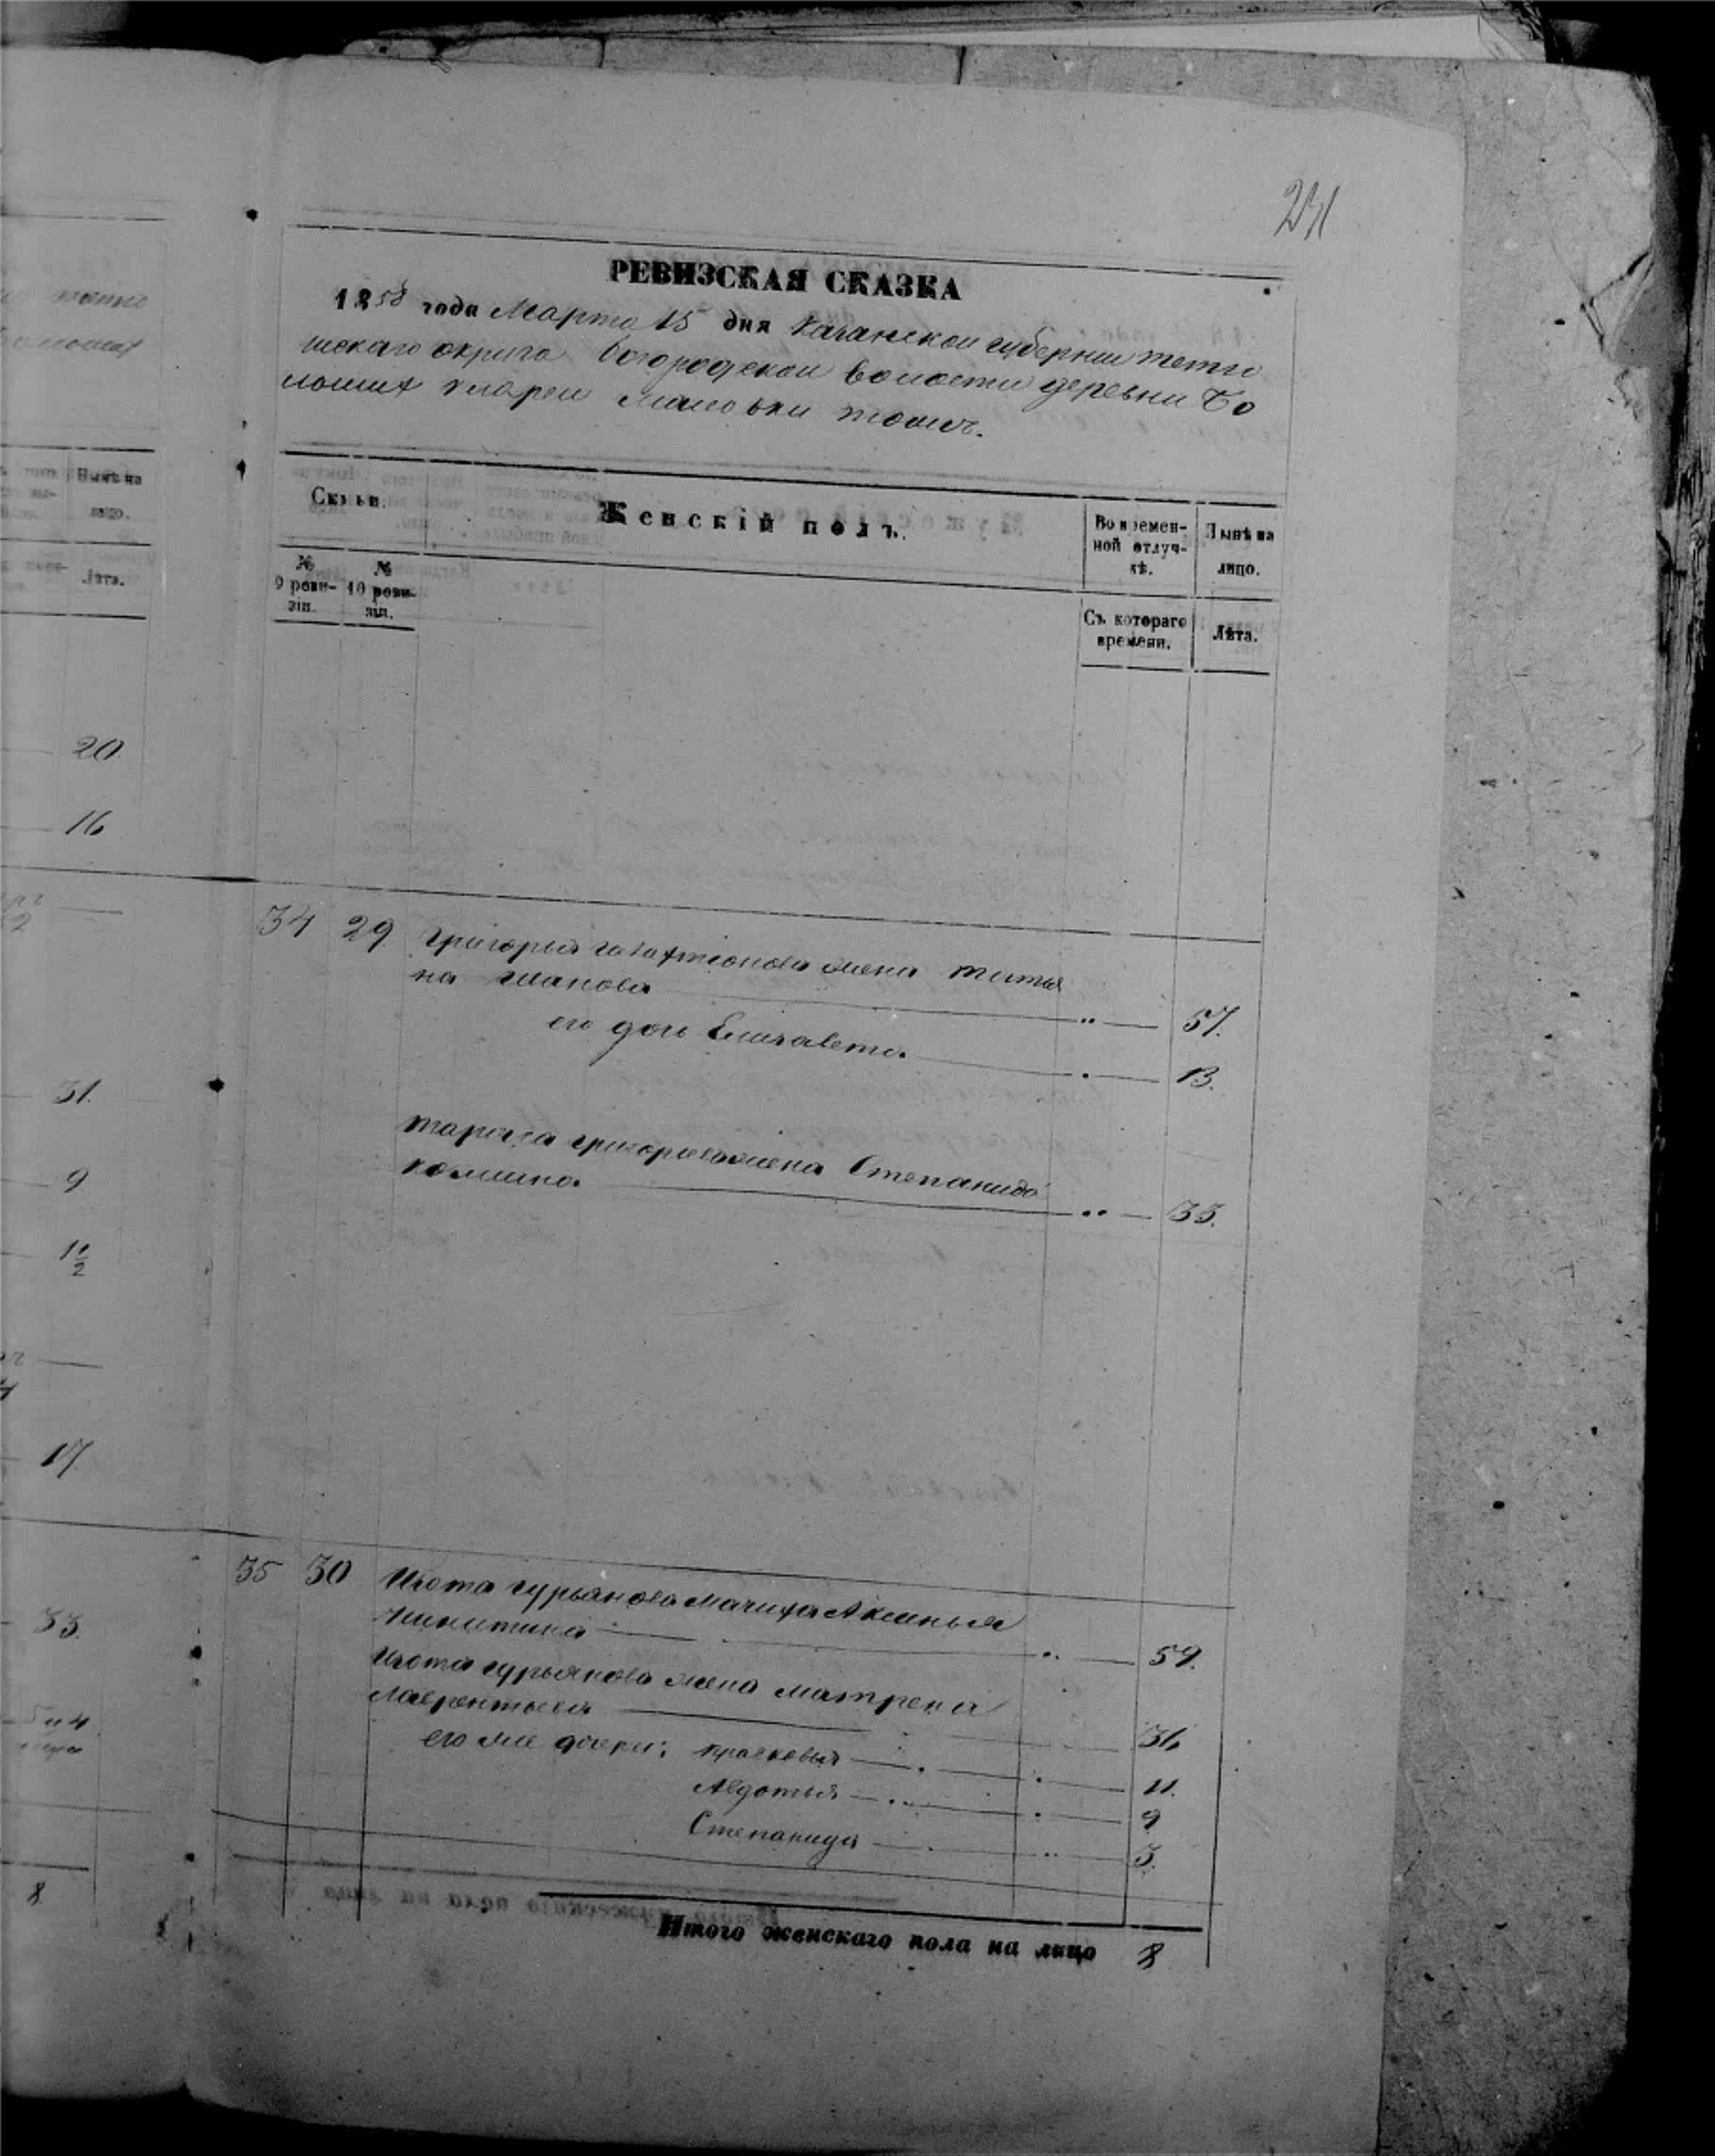 241
РЕВИЗСКАЯ СКАЗКА
1858 года Марта 15 дня Казанской губернии тетю
шскаго округа богородской волости деревни Бо
льших
Семьи.
Женскій полъ.
Во времен-
ной отлуч-
кѣ.
Нынѣ на
лицо.
№
9 реви-
зіи.
№
10 реви-
зіи.
Съ котораго
времени.
Лѣта.
20
16
31.
9
1/2
17
33.
8
34 29 Григорья жена татья
на 57.
его дочь Елизавета 13.
григорьева жена Степанида
козмина 33.
35 30 Изота гурьянова Мачиха Аксинья
Никитина 59.
Изота гурьянова жена матрена
Лаврентьева 36
его же дочери: прасковья 11.
Авдотья 9
Степанида 3.
Итого женскаго пола на лицо 8